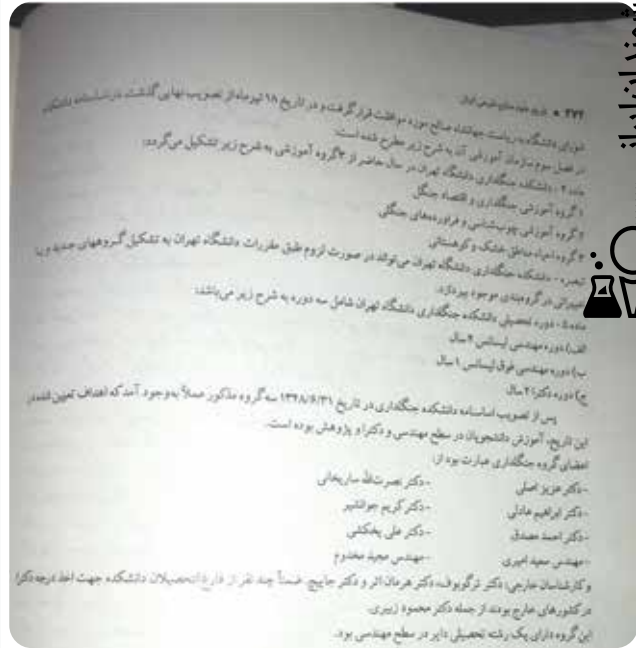 ۴۷۴ ● تاریخ علوم منابع طبیعی ایران
شورای دانشگاه به ریاست جهانشاه صالح مورد موافقت قرار گرفت و در تاریخ ۱۸ تیرماه از تصویب نهایی گذشت. در اساسنامه دانشکده
در فصل سوم سازمان آموزشی آن به شرح زیر مطرح شده است:
ماده ۴ - دانشکده جنگلداری دانشگاه تهران در حال حاضر از ۳ گروه آموزشی به شرح زیر تشکیل می‌گردد:
۱ گروه آموزشی جنگلداری و اقتصاد جنگل
۲ گروه آموزشی چوب‌شناسی و فراورده‌های جنگلی
۳ گروه احیاء مناطق خشک و کوهستانی
تبصره - دانشکده جنگلداری دانشگاه تهران می‌تواند در صورت لزوم طبق مقررات دانشگاه تهران به تشکیل گروههای جدید و یا
تغییراتی در گروه‌بندی موجود بپردازد.
ماده ۵ - دوره تحصیلی دانشکده جنگلداری دانشگاه تهران شامل سه دوره به شرح زیر می‌باشد:
الف) دوره مهندسی لیسانس ۴ سال
ب) دوره مهندسی فوق لیسانس ۱ سال
ج) دوره دکترا ۲ سال
پس از تصویب اساسنامه دانشکده جنگلداری در تاریخ ۱۳۴۸/۶/۳۱ سه گروه مذکور عملاً به‌وجود آمد که اهداف تعیین شده در
این تاریخ، آموزش دانشجویان در سطح مهندسی و دکترا و پژوهش بوده است.
اعضای گروه جنگلداری عبارت بود از:
- دکتر عزیز اصلی - دکتر نصرت‌الله ساریخانی
- دکتر ابراهیم عادلی - دکتر کریم جوانشیر
- دکتر احمد مصدق - دکتر علی یخکشی
- مهندس سعید امیری - مهندس مجید مخدوم
و کارشناسان خارجی: دکتر ترگوبوف، دکتر هرمان اتر و دکتر جاییچ. ضمناً چند نفر از فارغ‌التحصیلان دانشکده جهت اخذ درجه دکترا
در کشورهای خارج بودند از جمله دکتر محمود زبیری.
این گروه دارای یک رشته تحصیلی دایر در سطح مهندسی بود.